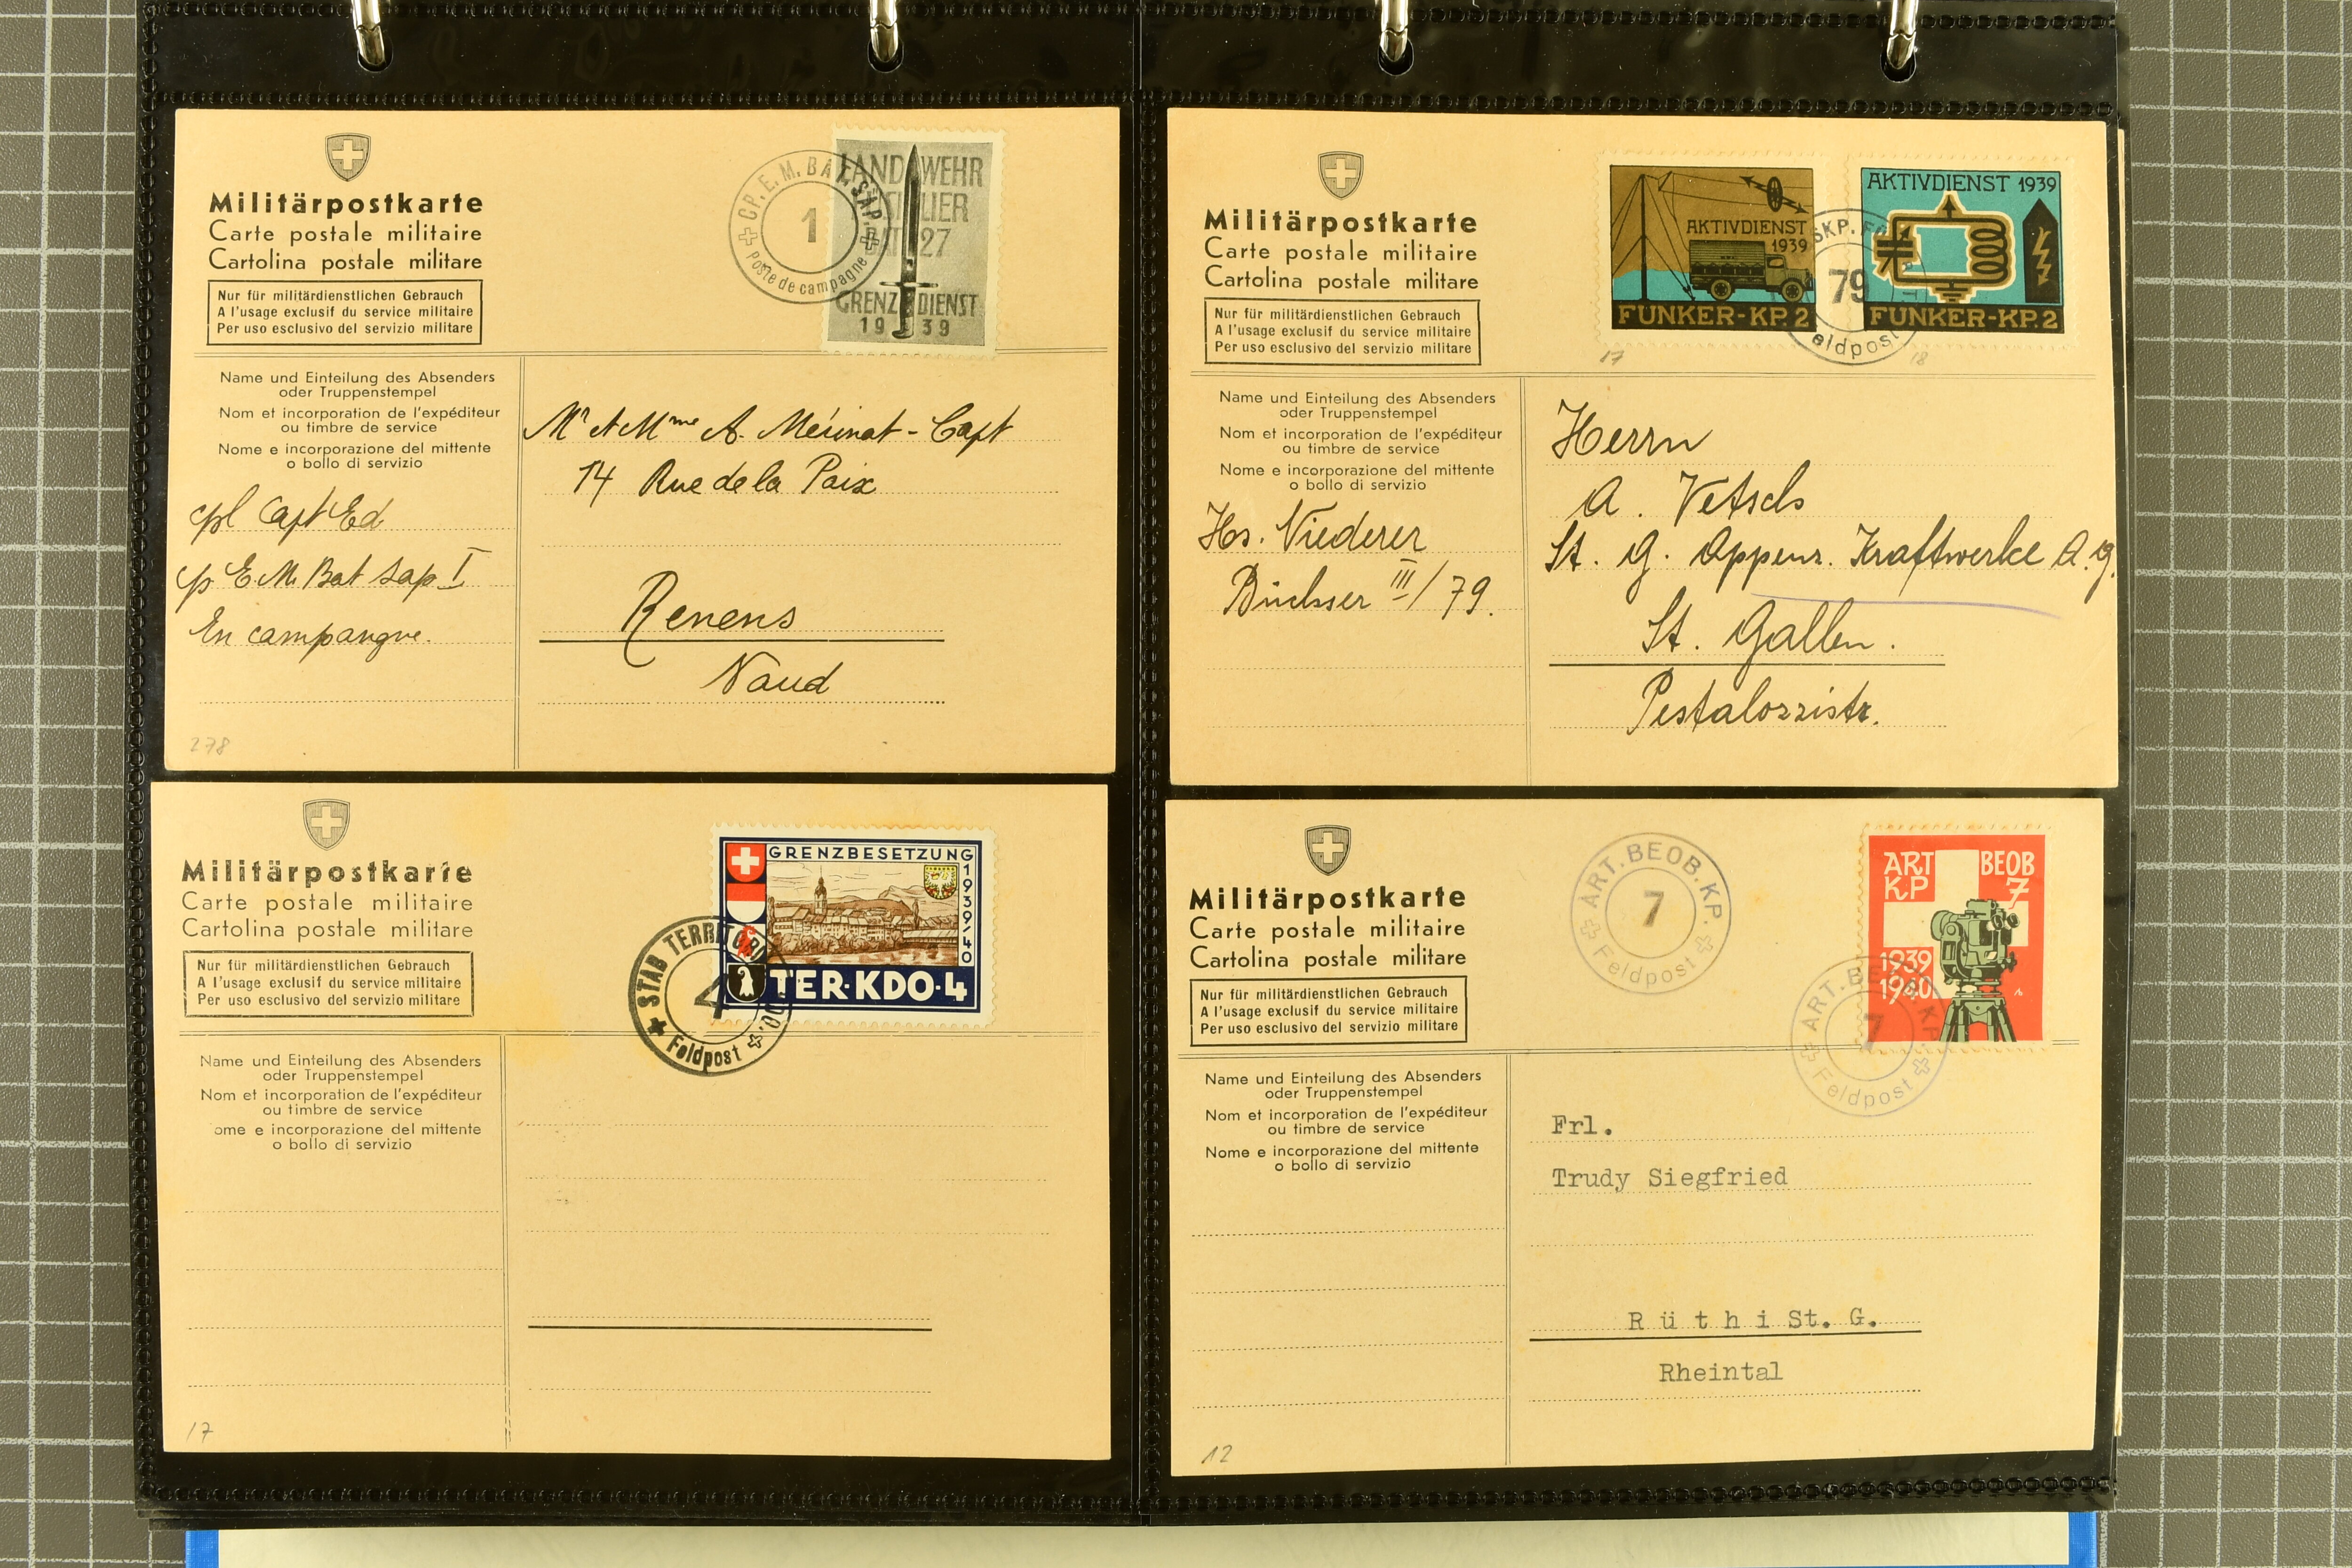 Militärpostkarte
Carte postale militaire
Cartolina postale militare
Nur für militärdienstlichen Gebrauch
A l'usage exclusif du service militaire
Per uso esclusivo del servizio militare
CP. E. M. BAT. SAP.
1
Poste de campagne
LANDWEHR
BAT 27
GRENZDIENST
1939
Name und Einteilung des Absenders
oder Truppenstempel
Nom et incorporation de l'expéditeur
ou timbre de service
Nome e incorporazione del mittente
o bollo di servizio
cpl Capt Ed
cp E. M. Bat Sap I
En campangne.
Mr et Mme A. Mérinat - Capt
14 Rue de la Paix
Renens
Vaud
278
Militärpostkarte
Carte postale militaire
Cartolina postale militare
Nur für militärdienstlichen Gebrauch
A l'usage exclusif du service militaire
Per uso esclusivo del servizio militare
AKTIVDIENST
1939
FUNKER-KP. 2
AKTIVDIENST 1939
FUNKER-KP. 2
79
eldpost
17
18
Name und Einteilung des Absenders
oder Truppenstempel
Nom et incorporation de l'expéditeur
ou timbre de service
Nome e incorporazione del mittente
o bollo di servizio
Hs. Niederer
Büchser III/79.
Herrn
A. Vetsch
St. G. Appenz. Kraftwerke A.G.
St. Gallen.
Pestalozzistr.
Militärpostkarte
Carte postale militaire
Cartolina postale militare
Nur für militärdienstlichen Gebrauch
A l'usage exclusif du service militaire
Per uso esclusivo del servizio militare
GRENZBESETZUNG
1939/40
TER·KDO·4
STAB TERRITORI
4
Feldpost
Name und Einteilung des Absenders
oder Truppenstempel
Nom et incorporation de l'expéditeur
ou timbre de service
ome e incorporazione del mittente
o bollo di servizio
17
Militärpostkarte
Carte postale militaire
Cartolina postale militare
Nur für militärdienstlichen Gebrauch
A l'usage exclusif du service militaire
Per uso esclusivo del servizio militare
ART. BEOB. KP.
7
Feldpost
ART BEOB
KP 7
1939
1940
ART. BEOB. KP.
7
Feldpost
Name und Einteilung des Absenders
oder Truppenstempel
Nom et incorporation de l'expéditeur
ou timbre de service
Nome e incorporazione del mittente
o bollo di servizio
Frl.
Trudy Siegfried
R ü t h i St. G.
Rheintal
12